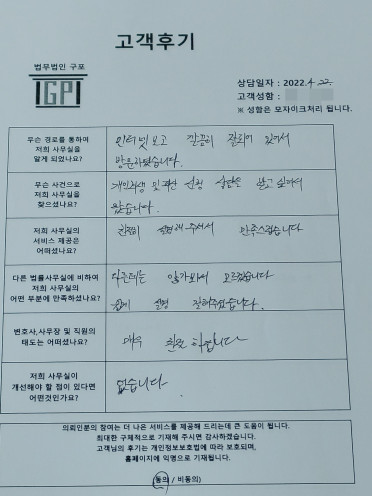 고객후기
법무법인 구포
GP
상담일자 : 2022. 4. 22.
고객성함 :
※ 성함은 모자이크처리 됩니다.
무슨 경로를 통하여
저희 사무실을
알게 되었나요?
인터넷보고 깔끔히 잘되어 있어서
방문하였습니다.
무슨 사건으로
저희 사무실을
찾으셨나요?
개인회생 및 파산 신청 상담을 받고 싶어서
왔습니다.
저희 사무실의
서비스 제공은
어떠셨나요?
친절히 설명해주셔서 만족스럽습니다
다른 법률사무실에 비하여
저희 사무실의
어떤 부분에 만족하셨나요?
다른데는 안가봐서 모르겠습니다
설명 잘해주셨습니다.
변호사,사무장 및 직원의
태도는 어떠셨나요?
매우 친절 하십니다
저희 사무실이
개선해야 할 점이 있다면
어떤것인가요?
없습니다.
의뢰인분의 참여는 더 나은 서비스를 제공해 드리는데 큰 도움이 됩니다.
최대한 구체적으로 기재해 주시면 감사하겠습니다.
고객님의 후기는 개인정보보호법에 따라 보호되며,
홈페이지에 익명으로 기재됩니다.
(동의 / 비동의)